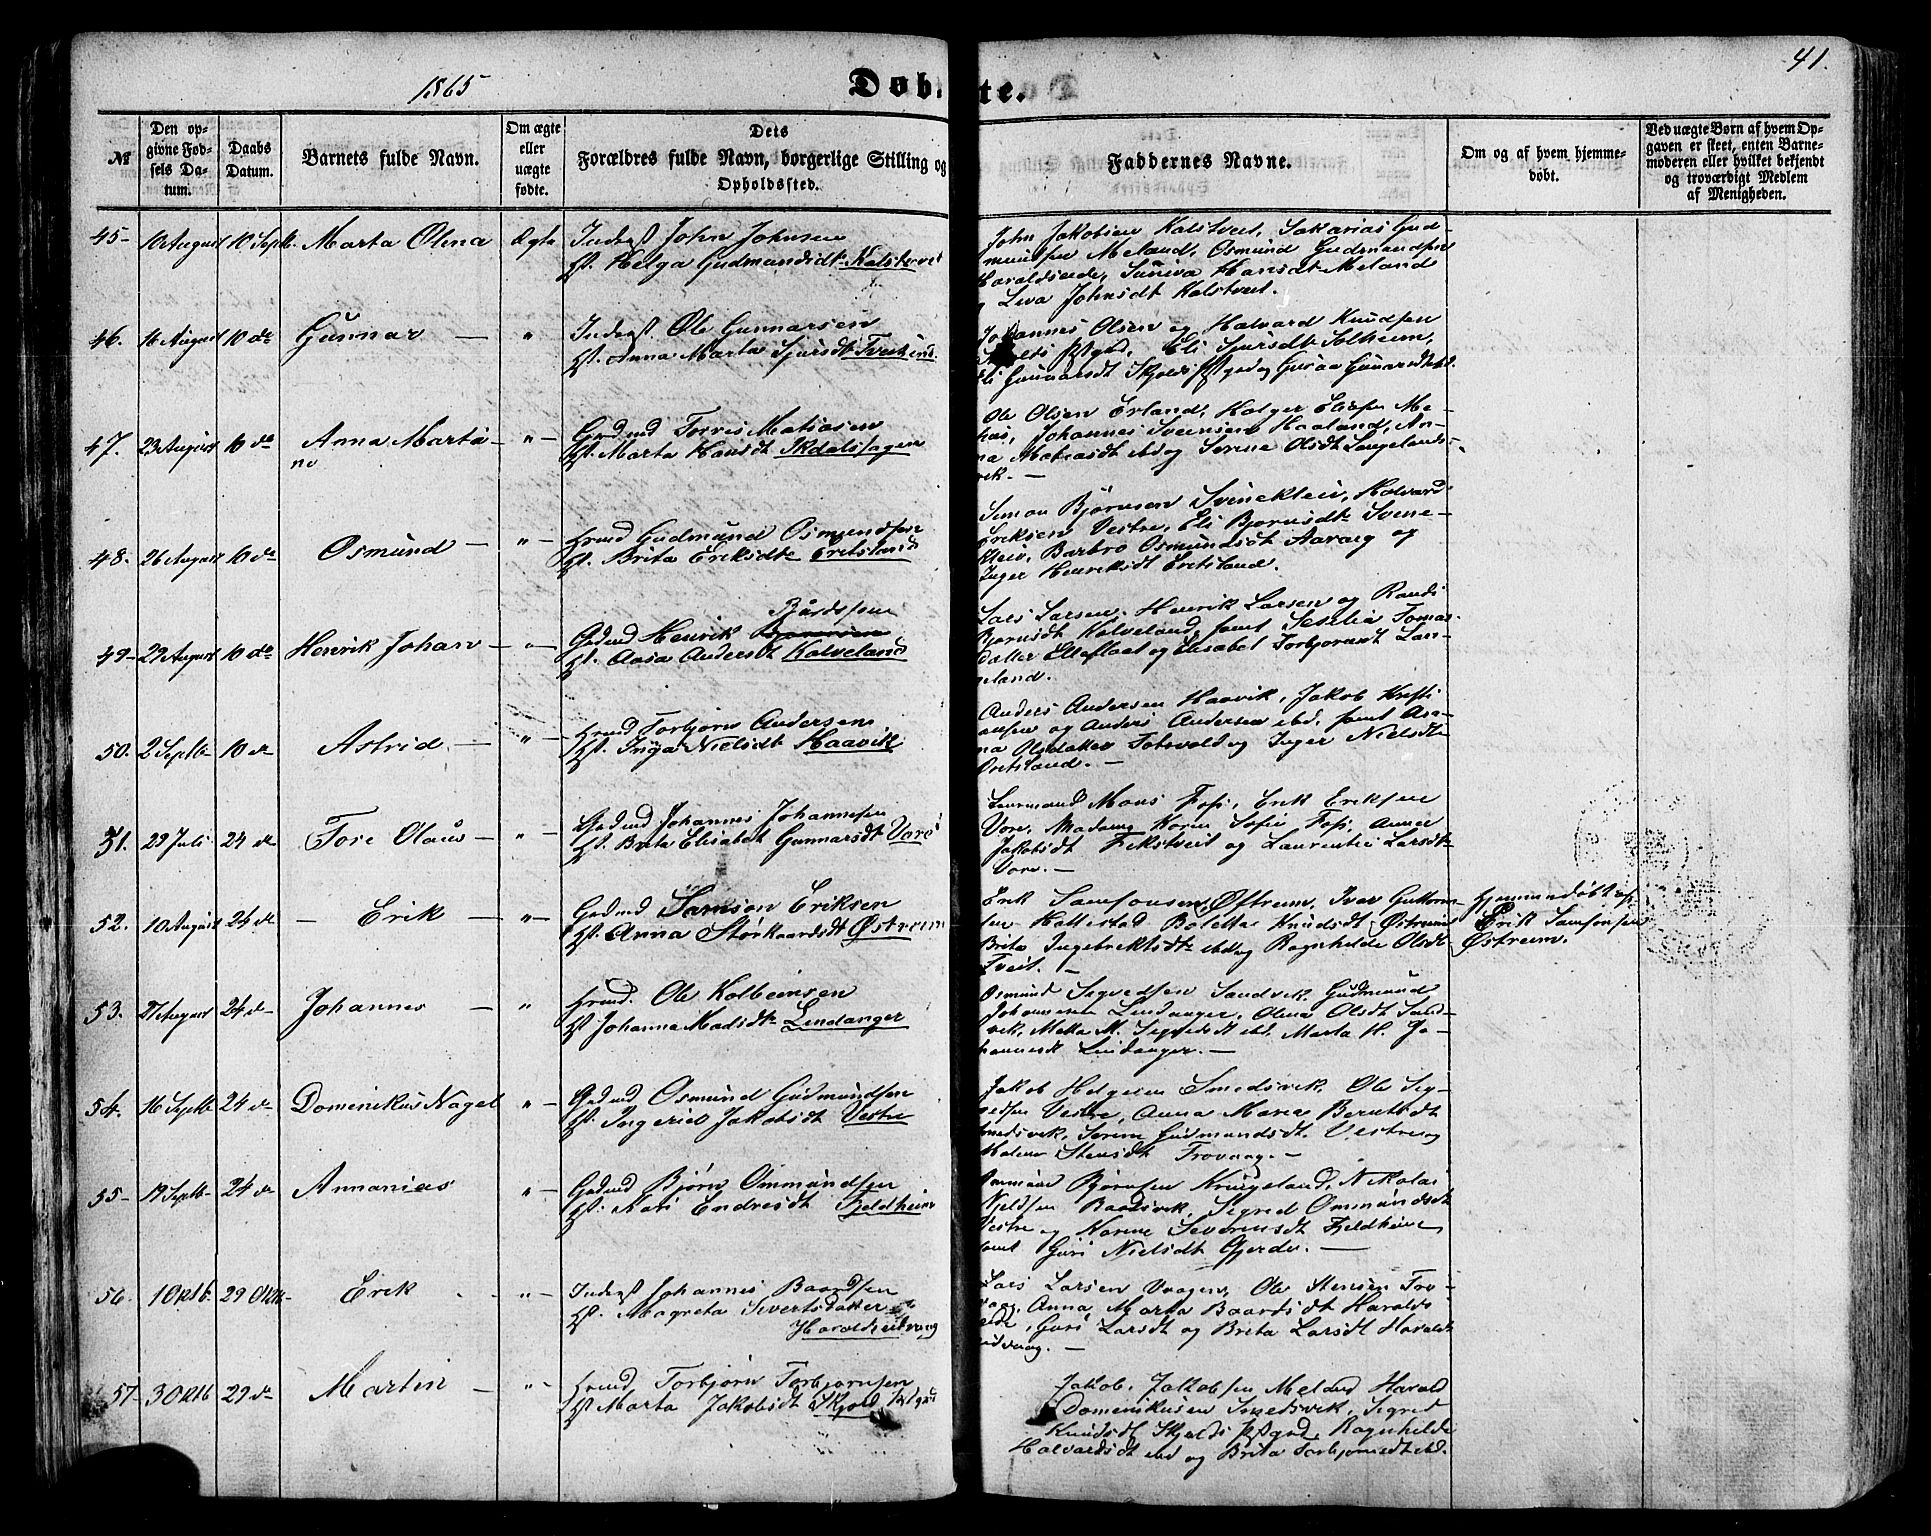 41.
1865
Døbte.
№
Den opgivne Fødsels Datum.
Daabs Datum.
Barnets fulde Navn.
Om ægte eller uægte fødte.
Dets Forældres fulde Navn, borgerlige Stilling og Opholdssted.
Faddernes Navne.
Om og af hvem hjemmedøbt.
Ved uægte Børn af hvem Opgaven er skeet, enten Barnemoderen eller hvilket bekjendt og troværdigt Medlem af Menigheden.
45- 10 August 10 Septb. Marta Olena Ægte Inderst John Johnsen
Hst. Helga Gudmundsdt. Kalstevet
John Jakobsen Kalstveit, Sakarias Gud-
mundsen Meland, Osmund Gudmundsen
Haraldseide, Suniva Hansdt. Meland
Liva Johnsdt Kalstveit.
46. 16 August 10 do Gunnar — " Inderst Ole Gunnarsen
Hst. Anna Marta Sjursdt.
Johannes Olsen og Halvard Knudsen
Eli Sjursdt Solheim,
Eli Gunnarsdt Skjolds
47. 23 August 10 do Anna Marta- " — Gbdmd Torres Matiasen
ne Hst. Marta Hansdt
Ole Olsen Erland, Holger
Johannes Svensen Haaland, An-
na Matiasdt ibd og Serine Olsdt Langelands-
vik. —
48. 26 August 10 do Osmund — " — Hmd Gudmund Osmundsen
Hst. Brita Eriksdt. Eretsland
Simon Bjørnsen Svinekleiv, Halvard
Eriksen Vestre, Eli Bjørnsdt Svine-
kleiv, Barbro Osmundsdt Aarvig og
Inger Henriksdt Eretsland.
49- 29 August 10 do Henrik Johan — " — Gbdmd Henrik Bårdsen
Hst. Aasa Andersdt Kalveland
Lars Larsen, Henrik Larsen og Randi
Bjørnsdt Kalveland, samt Sesilia Tomas-
datter og Elisabet Torbjørnsdt Lan-
geland.
50. 2 Septb 10 do Astrid. — " — Hmd Torbjørn Andersen
Hst. Inga Nielsdt Haavik
Anders Andersen Haavik, Jakob Kristi
ansen og Anders Andersen ibd, samt An-
na Olsdatter og Inger Nielsdt
Eretsland. —
51. 29 Juli 24 do Tore Olaus — " — Gbdmd Johannes Johannesen
Hst. Brita Elisabet Gunnarsdt Vore
Mons Foss, Erik Eriksen
Vore, Madame Karen Sofie Foss, Anna
Jakobsdt Fikstveit og Laurentse Larsdt
Vore. —
52. 10 August 24 do — Erik — " — Gbdmd Samson Eriksen
Hst. Anna Storkaardsdt Østreim
Erik Samsonsen Østreim, Iver Guttorm-
sen Hattestad Boletta Knudsdt Østreim
Brita Ingebrektsdt. ibd og Ragnhilde Olsdt
Tveit. —
Hjemmedøbt af
Erik Samsonsen
Østreim.
53. 27 August 24 do Johannes — " Hmd. Ole Kolbeinsen
Hst Johanna Madsdt. Lindanger
Osmund Sigvedsen Sandvik. Gudmund
Johannesen Lindanger, Olena Olsdt Sand-
vik, Malla M. Sigvedsdt ibd. Marta H. Jo-
hannesdt Lindanger. —
54. 16 Septb 24 do Domenikus Nagel " — Gbdmd Osmund Gudmundsen
Hst. Ingerid Jakobsdt Vestre
Jakob Helgesen Smedsvik. Ole Sig-
vedsen Vestre, Anna Maria Berntsdt
Smedsvik, Serene Gudmundsdt. Vestre og
Stensdt Trovaag. —
55- 19 Septb. 24 do Annanias " — Gbdmd Bjørn Ommundsen
Hst. Kari Endresdt Fjeldheim
Ommund Bjørnsen Kringeland, Nikolai
Baadsvik, Sigrid Ommundsdt
Vestre og Karine Severinsdt Fjeldheim
samt Guri Nielsdt Gjerde. —
56. 1 Oktb. 29 Oktb- Erik " — Inderst Johannes Baardsen
Hst. Magreta Sivertsdatter
Haraldseidvaag
Lars Larsen Vaagen, Ole Stensen Tro-
vaag, Anna Marta Baardsdt Haralds
eidt, Guri Larsdt og Brita Larsdt Harald
eidvaag. —
57. 3 Oktb 29 do Martin — " — Hmd Torbjørn Torbjørnsen
Hst. Marta Jakobsdt Skjold
Jakob Jakobsen Meland Harald
Domenikusen Smedsvik, Sigrid
Knudsdt Skjolds Pstgrd, Ragnhilde
Halvardsdt ibd og Brita Torbjørnsdt ibd.